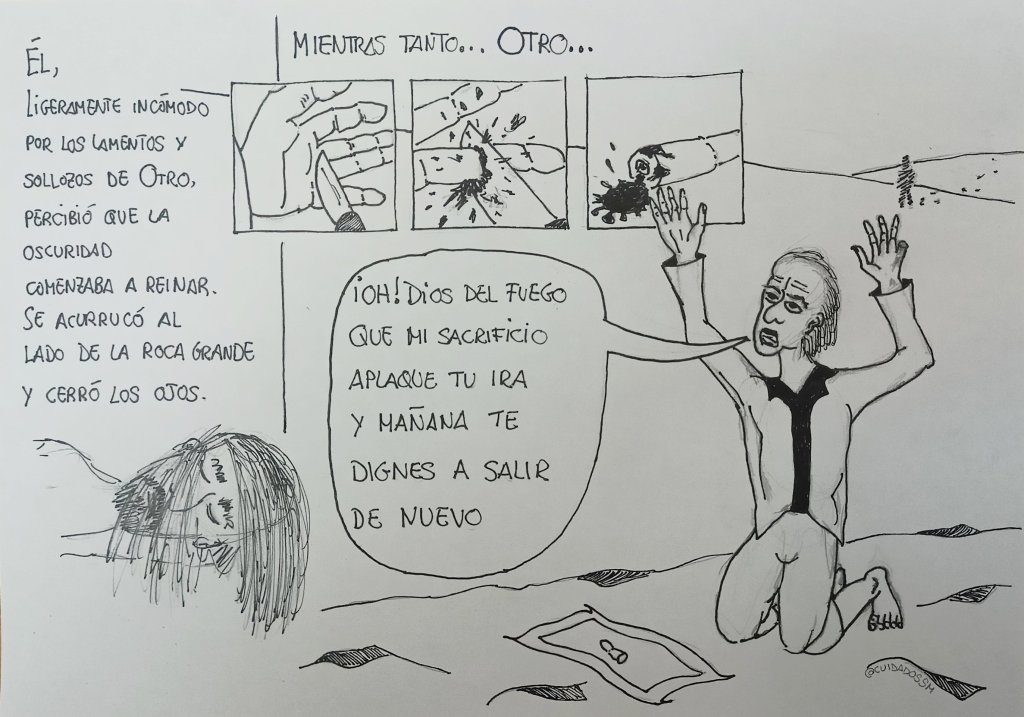 ÉL,
LIGERAMENTE INCÓMODO
POR LOS LAMENTOS Y
SOLLOZOS DE OTRO,
PERCIBIÓ QUE LA
OSCURIDAD
COMENZABA A REINAR.
SE ACURRUCÓ AL
LADO DE LA ROCA GRANDE
Y CERRÓ LOS OJOS.
MIENTRAS TANTO... OTRO...
¡OH! DIOS DEL FUEGO
QUE MI SACRIFICIO
APLAQUE TU IRA
Y MAÑANA TE
DIGNES A SALIR
DE NUEVO
@CUIDADOSSM